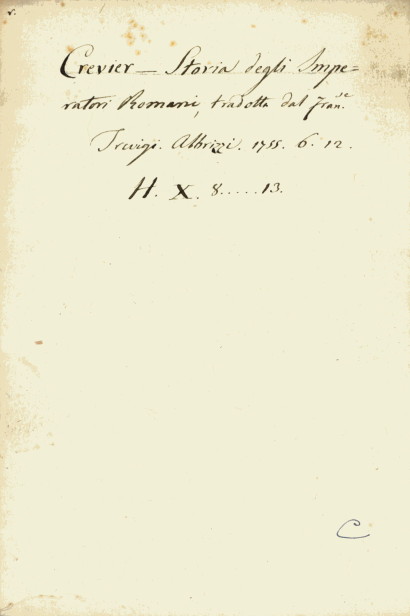 Crevier — Storia degli Impe=
ratori Romani, tradotta dal fran.se
Trevigi. Albrizzi. 1755. 6. 12.
H. X. 8.....13.
C